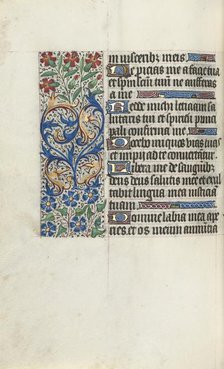 in visceribus meis.
Ne proicias me a facie tua
et spm scm tuu ne auferas
a me
Redde michi leticiam sa
lutaris tui et spiritu princi
pali confirma me.
Docebo iniquos vias tuas
et impii ad te convertetur.
Libera me de sanguibz
deus deus salutis mee et exul
tabit lingua mea iusticia
tuam.
Domine labia mea ape
ries et os meum annucia